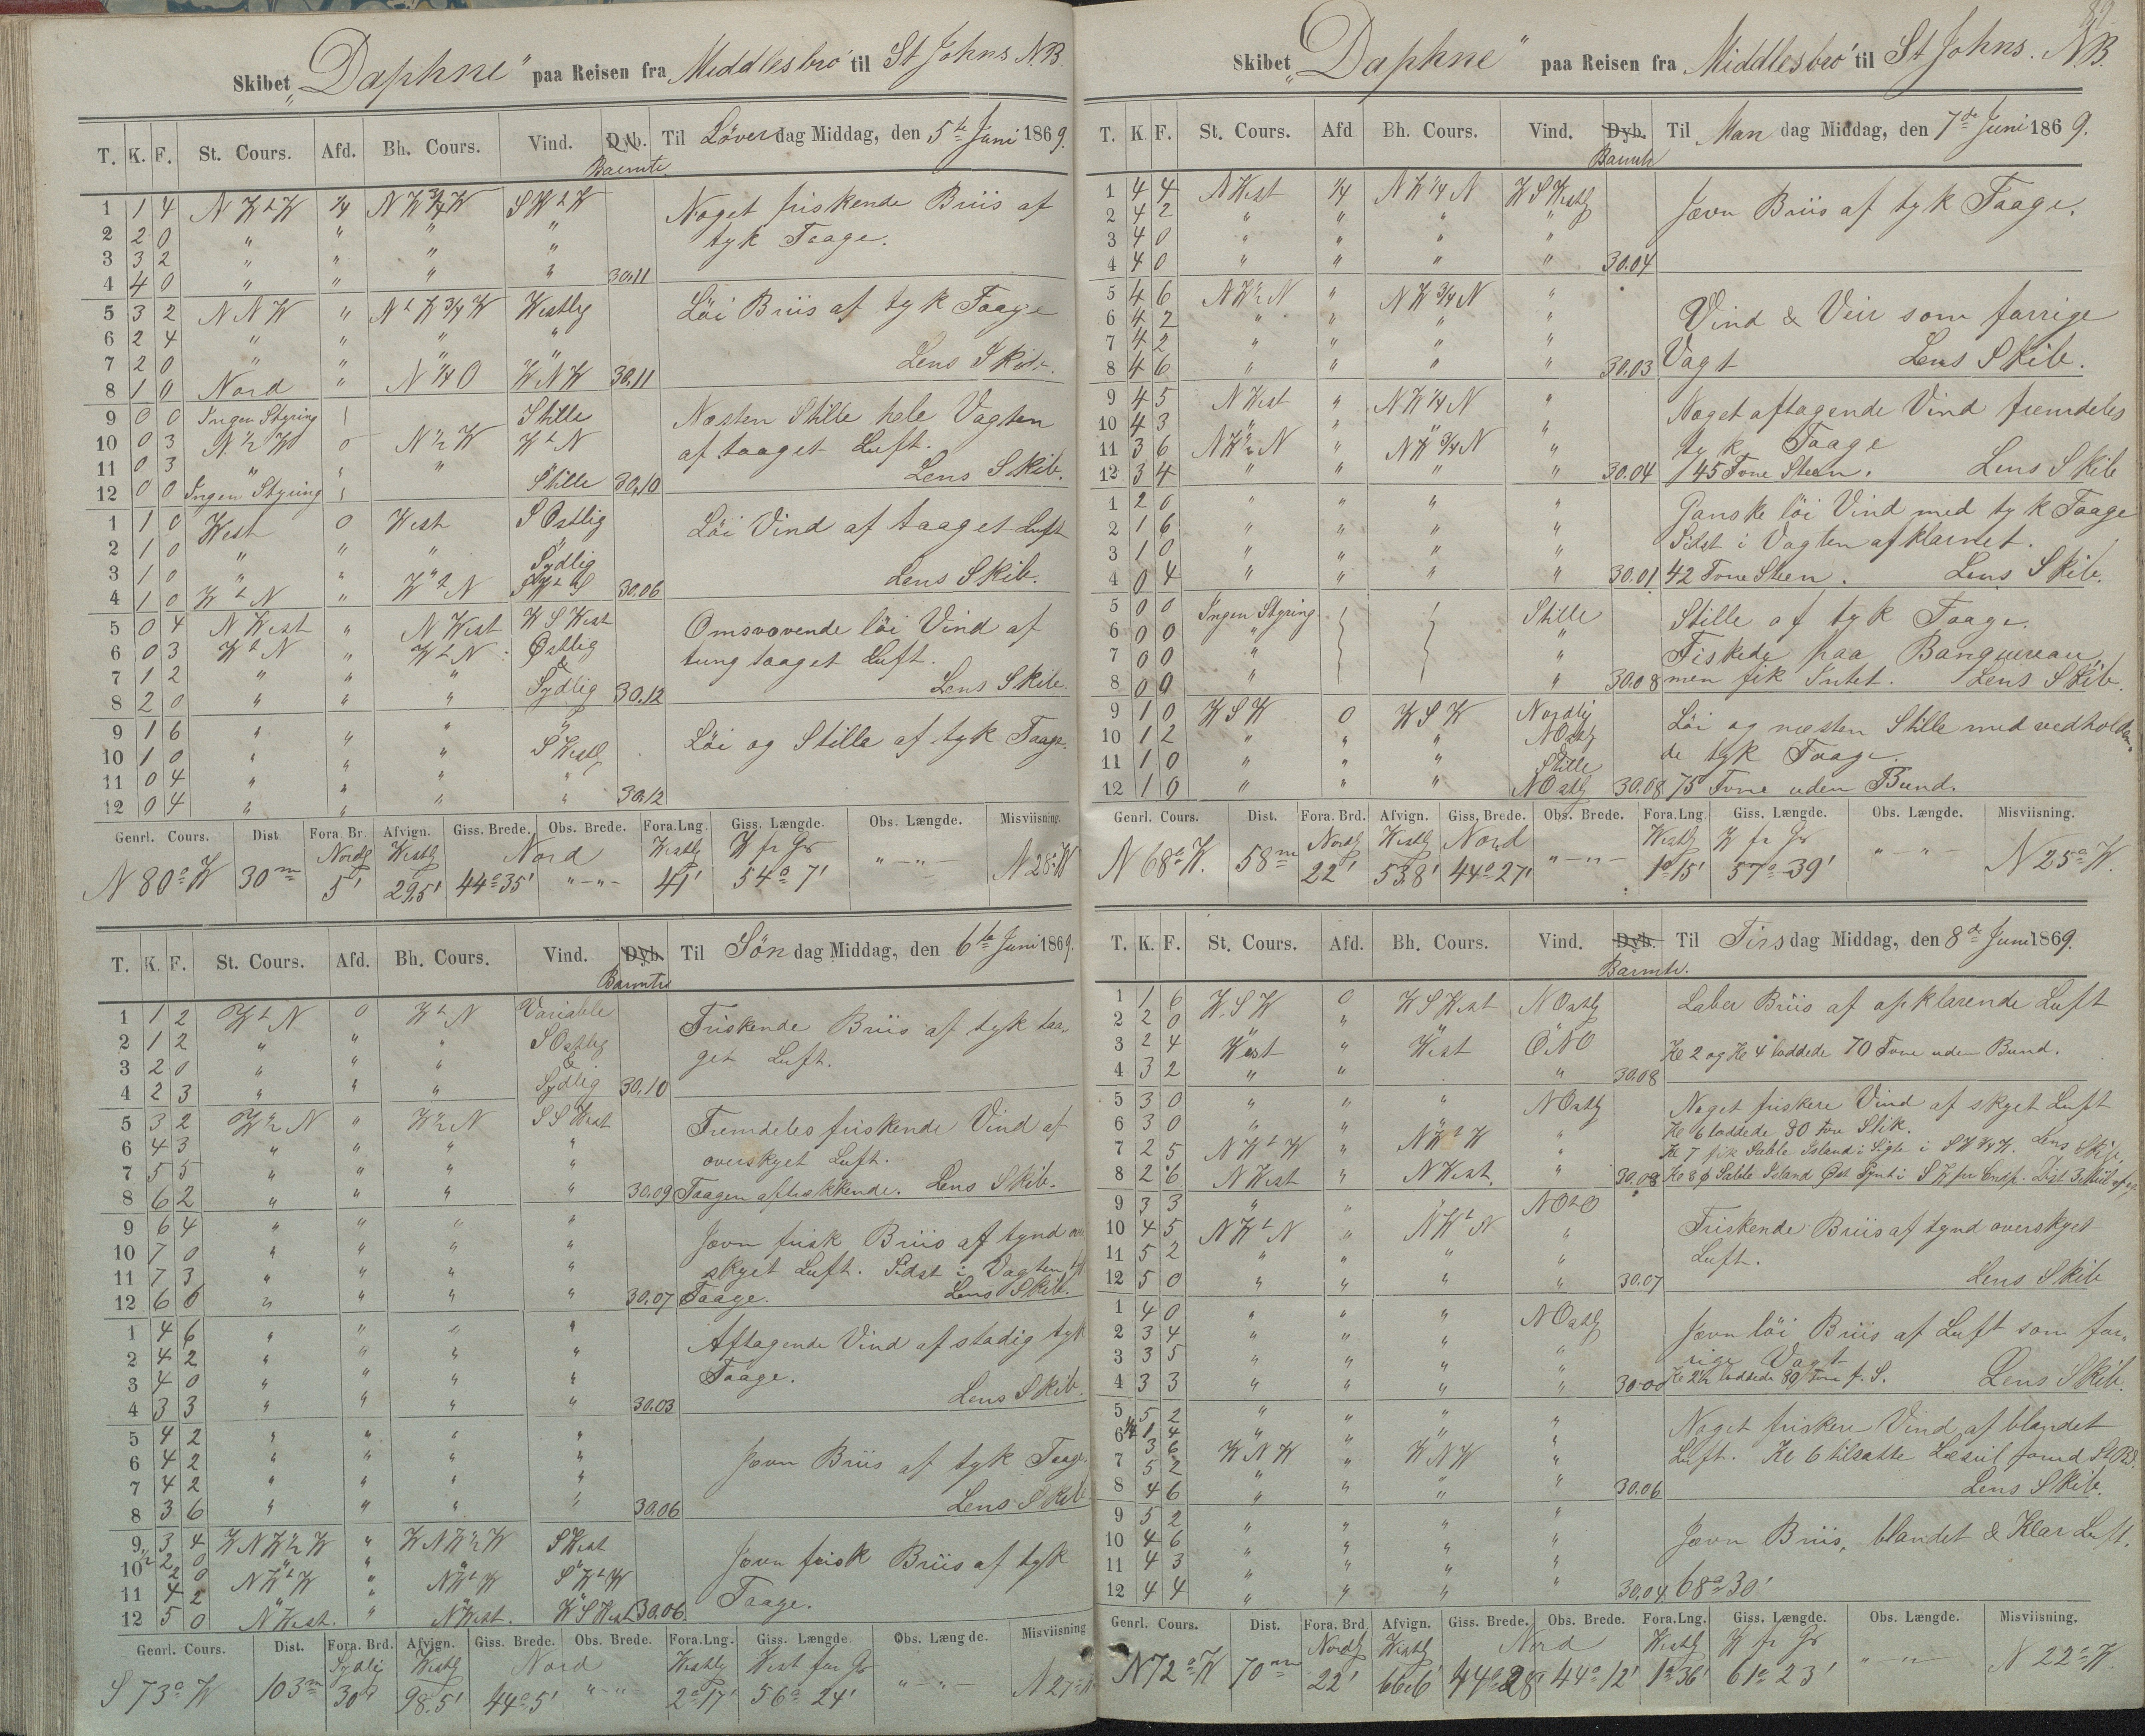 Skibet „Daphne" paa Reisen fra Middlesbro' til St Johns N.B.
T. K. F. St. Cours. Afd. Bh. Cours. Vind. Dyb. Barmtr. Til Löverdag Middag, den 5te Juni 1869.
1 1 4 N W t W 1/4 N W 3/4 W S W t W Noget friskende Briis af
2 2 0 " " " " tyk Taage.
3 3 2 " " " "
4 4 0 " " " " 30,11
5 3 2 N N W " N t W 3/4 W Westlig Löi Briis af tyk Taage
6 2 4 " " " "
7 2 0 " " " " Lens Skib.
8 1 0 Nord " N 1/4 O W N W 30,11
9 0 0 Ingen Styring Stille Næsten Stille hele Vagten
10 0 3 N 1/2 W 0 N 1/2 W W t N af taaget Luft.
11 0 3 " " " Lens Skib.
12 0 0 Ingen Styring Stille 30,10
1 1 0 West 0 West S Ostlig Löi Vind af taaget Luft
2 1 0 " " " "
3 1 0 " " " Sydlig Lens Skib.
4 1 0 W t N " W t N 30.06
5 0 4 N West " N West W S West Omsvovende löi Vind af
6 0 3 W t N " W t N Østlig tung taaget Luft.
7 1 2 " " " & Lens Skib.
8 2 0 " " " Sydlig 30.12
9 1 6 " " " " Löi og Stille af tyk Taage.
10 1 0 " " " S Westlg
11 0 4 " " "
12 0 4 " " " " 30.12
Genrl. Cours. Dist Fora. Br. Afvign. Giss. Brede. Obs. Brede. Fora.Lng. Giss. Længde. Obs. Længde. Misviisning.
Nordlg Westlg Nord Westlg W fr Gr
N 80° W 30 m 5' 29,5' 44° 35' "—"— 41' 54° 7' "—"— N 28° W
T. K. F. St. Cours. Afd. Bh. Cours. Vind. Dyb. Barmtr Til Söndag Middag, den 6te Juni 1869.
1 1 2 W t N 0 W t N Variable Friskende Briis af tyk taa„
2 1 2 " " " S Ostlig get Luft.
3 2 0 " " " &
4 2 3 " " " Sydlig 30,10
5 3 2 W 1/2 N " W 1/2 N S S West Fremdeles friskende Vind af
6 4 3 " " " " overskyet Luft.
7 5 5 " " " "
8 6 2 " " " " 30.09 Taagen aftrækkende. Lens Skib.
9 6 4 " " " " Jævn frisk Briis af tynd over
10 7 0 " " " " skyet Luft. Sidst i Vagten tyk
11 7 3 " " " "
12 6 6 " " " " 30.07 Taage. Lens Skib.
1 4 6 " " " " Aftagende Vind af stadig tyk
2 4 2 " " " " Taage.
3 4 0 " " " " Lens Skib.
4 3 3 " " " " 30.03
5 4 2 " " " "
6 4 2 " " " " Jævn Briis af tyk Taage.
7 4 2 " " " "
8 3 6 " " " " 30.06 Lens Skib
9 3 4 W N W 1/2 W " W N W 1/2 W S West Jævn frisk Briis af tyk
10 1/2 2 0 " " " " Taage.
2 0 N W t W " N W t W S W t W
11 4 2 " " " "
12 5 0 N West. " N West. W S West 30.06
Genrl. Cours. Dist. Fora. Brd. Afvign. Giss. Brede. Obs. Brede. Fora.Lng. Giss. Længde. Obs. Længde. Misviisning
Sydlig Westlg Nord Westlg West for Gr
S 73° W 103 m 30' 98.5' 44° 5' "—"— 2° 17' 56° 24' "—"— N 27° W
Skibet „Daphne" paa Reisen fra Middlesbro' til St Johns. N.B.
T. K. F. St. Cours. Afd Bh. Cours. Vind. Dyb. Barmtr Til Mandag Middag, den 7de Juni 1869.
1 4 4 N West 1/4 N W 1/4 N W S Westlg Jævn Briis af tyk Taage.
2 4 2 " " " "
3 4 0 " " " "
4 4 0 " " " " 30.04
5 4 6 N W 1/2 N " N W 3/4 N " Vind & Veir som forrige
6 4 2 " " " "
7 4 2 " " " "
8 4 6 " " " " 30.03 Vagt Lens Skib.
9 4 5 N West " N W 1/4 N " Noget aftagende Vind fremdeles
10 4 3 " " " " tyk Taage
11 3 6 N W 1/2 N " N W 3/4 N "
12 3 4 " " " " 30.04 145 Fvne Steen. Lens Skib
1 2 0 " " " " Ganske löi Vind med tyk Taage
2 1 6 " " " " Sidst i Vagten afklarnet.
3 1 0 " " " "
4 0 4 " " " " 30.01 42 Fvne Steen. Lens Skib.
5 0 0 Ingen Styring Stille Stille af tyk Taage.
6 0 0 " " Fiskede paa Banquereau,
7 0 0 " "
8 0 0 " " 30.08 men fik Intet. Lens Skib.
9 1 0 W S W 0 W S W Nordlig Löi og næsten Stille med vedholden„
10 1 2 " " " N Ostlg de tyk Taage.
11 1 0 " " " & Stille
12 1 0 " " " N Ostlg 30.08 75 Fvne uden Bund.
Genrl. Cours. Dist. Fora. Brd. Afvign. Giss. Brede. Obs. Brede. Fora.Lng. Giss. Længde. Obs. Længde. Misviisning.
Nordlg Westlg Nord Westlg W fr Gr
N 68° W. 58 m 22' 53,8' 44° 27' "—"— 1° 15' 57° 39' "—"— N 25° W.
T. K. F. St. Cours. Afd. Bh. Cours. Vind. Dyb. Barmtr. Til Tirsdag Middag, den 8de Juni 1869.
1 1 6 W S W 0 W S West N Ostlg Laber Briis af opklarende Luft
2 2 0 " " " "
3 2 4 West " West O N O Kl 2 og Kl 4 loddede 70 Fvne uden Bund.
4 3 2 " " " 30.08
5 3 0 " " " N Ostlg Noget friskere Vind af skyet Luft
6 3 0 " " " " Kl 6 loddede 30 Fvn Slik.
7 2 5 N W t W " N W t W " Kl 7 fik Sable Island i Sigte i S W 3/4 W. Lens Skib.
8 2 6 N West " N West. " 30.08 Kl 8 Sable Island Øst Pynt i S W pr Comp. Dist 3 Miil
9 3 3 " " " N O t O
10 4 5 N W t N " N W t N " Friskende Briis af tynd overskyet
11 5 2 " " " " Luft.
12 5 0 " " " " 30.07 Lens Skib
1 4 0 " " " N Ostlg
2 3 4 " " " Jævn löi Briis af Luft som for„
3 3 5 " " " " rige Vagt
4 3 3 " " " " 30.00 Kl 2 1/2 loddede 80 Fvne f. S. Lens Skib.
5 5 2 " " " " Noget friskere Vind af blandet
6 1/4 1 4 " " "
3 6 W N W " W N W " Luft. Kl 6 tilsatte Læseil
7 5 2 " "
8 4 6 " " " " 30.06 Lens Skib.
9 5 2 " " " "
10 4 6 " " " " Jævn Briis, blandet & Klar Luft.
11 4 3 " " " "
12 4 4 " " " " 30,04 68° 30'
Genrl. Cours. Dist. Fora. Brd. Afvign. Giss. Brede. Obs. Brede. Fora.Lng. Giss. Længde. Obs. Længde. Misviisning.
Nordlg Westlg Nord Westlg W fr Gr
N 72° W 70 m 22' 66,6' 44° 28' 44° 12' 1° 36' 61° 23' "—"— N 22° W.